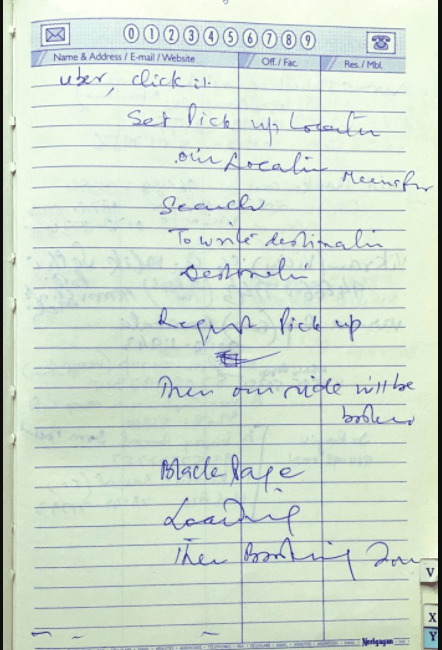 0 1 2 3 4 5 6 7 8 9
Name & Address / E-mail / Website Off./ Fac. Res./ Mbl.
uber, click it
Set Pick up Locatin
our Locatin
Search
To write destinatin
Destinatin
Request Pick up
Then our ride will be
booked
Black Page
Loading
Then Booking
V
X
Y